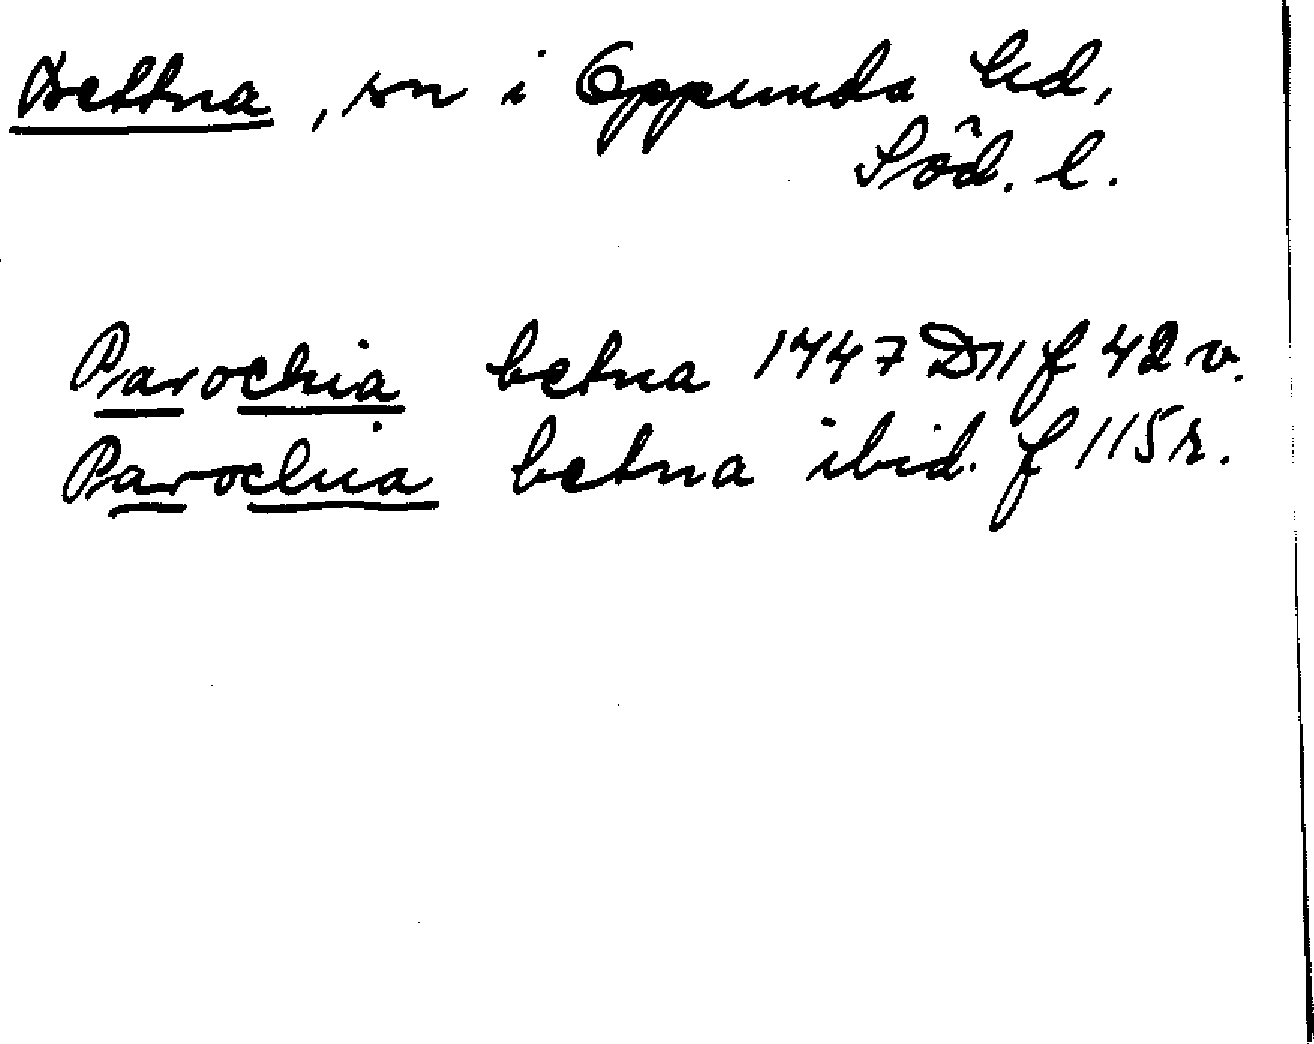 Bettna, sn i Oppunda hd,
Söd. l.
Parochia betna 1447 D11 f 42 v.
Parochia betna ibid. f 115 r.